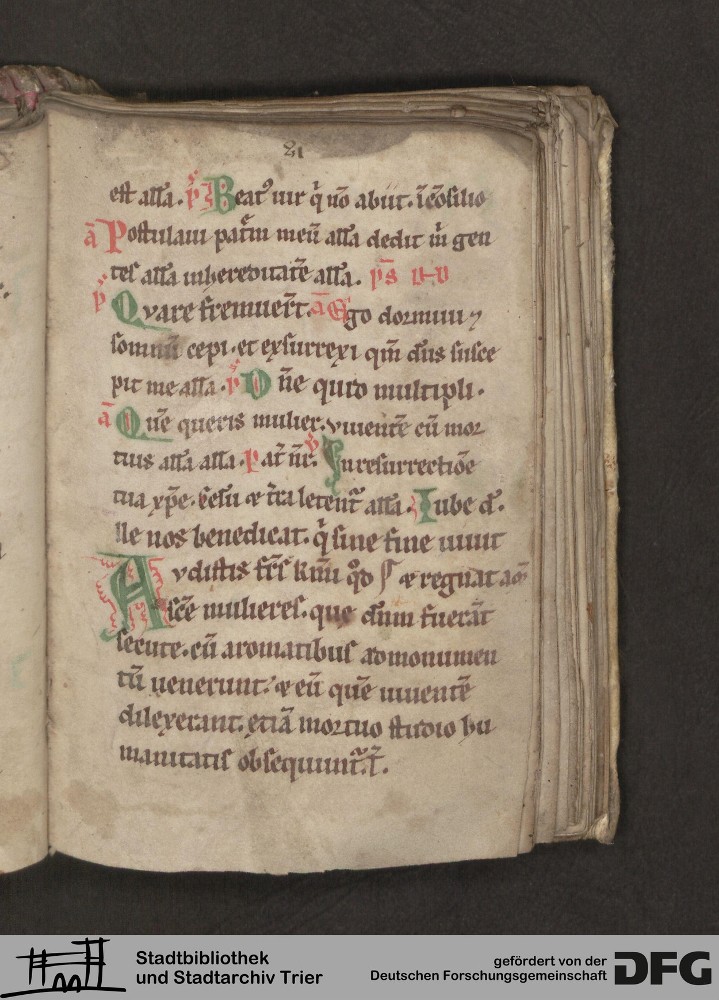 21
est alła. p̄s Beatꝰ uir q̇ nō abiit. ī cōsilio
ā Postulaui patrē meū alła dedit m̄ gen
tes alła in hereditatē alła. p̄s
p̄s Qvare fremuer̄t. ā Ego dormiui ⁊
somnū cepi. et exsurrexi qm̄ dn̄s susce
pit me alła. p̄s Dn̄e quid multipli.
ā Quē queris mulier. viuentē cū mor
tuis alła alła. Pat̄ nr̄. Jn resurrectiōe
tua xp̄e. celū & t̄ra letent̄ alła. Iube d̄.
Ille nos benedicat. q̇ sine fine uiuit
Avdistis fr̄s kmī & regnat
scē mulieres. que dn̄m fuerāt
secute. cū aromatibus ad monumen
tū uenerunt. & eū quē uiuentē
dilexerant. etiā mortuo studio hu
manitatis obsequunt̄.
Stadtbibliothek
und Stadtarchiv Trier
gefördert von der
Deutschen Forschungsgemeinschaft
DFG